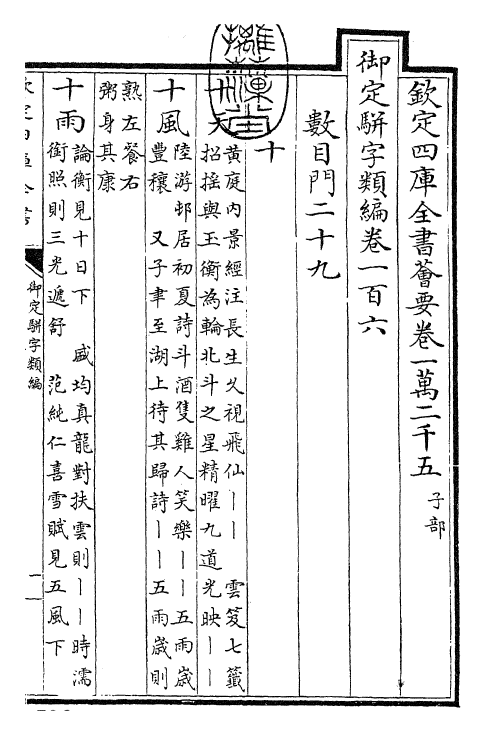 欽定四庫全書薈要卷一萬二千五 子部
御定駢字類編卷一百六
數目門二十九
十
十天 黃庭內景經注長生久視飛仙丨丨 雲笈七籤
招搖與玉衡為輪北斗之星精曜九道光映丨丨
十風 陸游邨居初夏詩斗酒隻雞人笑樂丨丨五雨歲
豐穰 又子聿至湖上待其歸詩丨丨五雨歲則
熟左餐右
粥身其康
十雨 論衡見十日下 戚均真龍對扶雲則丨丨時濡
銜照則三光遞舒 范純仁喜雪賦見五風下
御定駢字類編